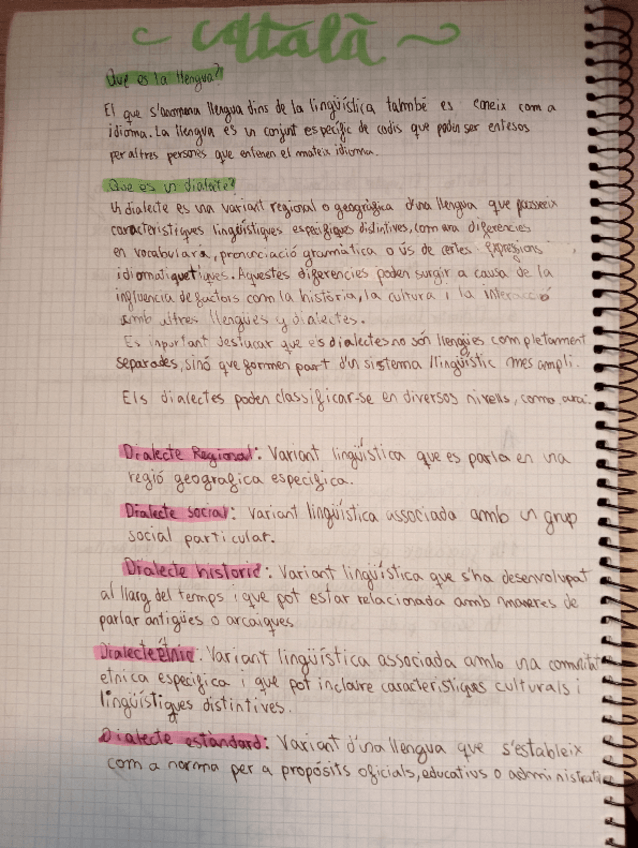 Català
Que es la llengua?
El que s'anomena llengua dins de la lingüística també es coneix com a
idioma. La llengua es un conjunt específic de codis que poden ser entesos
per altres persones que entenen el mateix idioma.
Que es un dialecte?
Un dialecte es una variant regional o geogràgica d'una llengua que posseeix
característiques lingüístiques especifiques distintives, com ara diferencies
en vocabulara, pronunciació gramàtica o ús de certes expressions
idiomatiquetiques. Aquestes diferencies poden surgir a causa de la
influencia de factors com la història, la cultura i la interacció
amb altres llengües y dialectes.
Es important destacar que els dialectes no són llengües completament
separades, sinó que formen part d'un sistema llingüistic mes ampli.
Els dialectes poden classificar-se en diversos nivells, como ara:
Dialecte Regional: Variant lingüística que es parla en una
regió geografica especifica.
Dialecte social: Variant lingüística associada amb un grup
social particular.
Dialecte historic: Variant lingüística que s'ha desenvolupat
al llarg del temps i que pot estar relacionada amb maneres de
parlar antigües o arcaiques
Dialecte Ètnic: Variant lingüística associada amb una comunitat
etnica especifica i que pot incloure característiques culturals i
lingüístiques distintives.
Dialecte estàndard: Variant d'una llengua que s'estableix
com a norma per a propòsits oficials, educatius o administratius